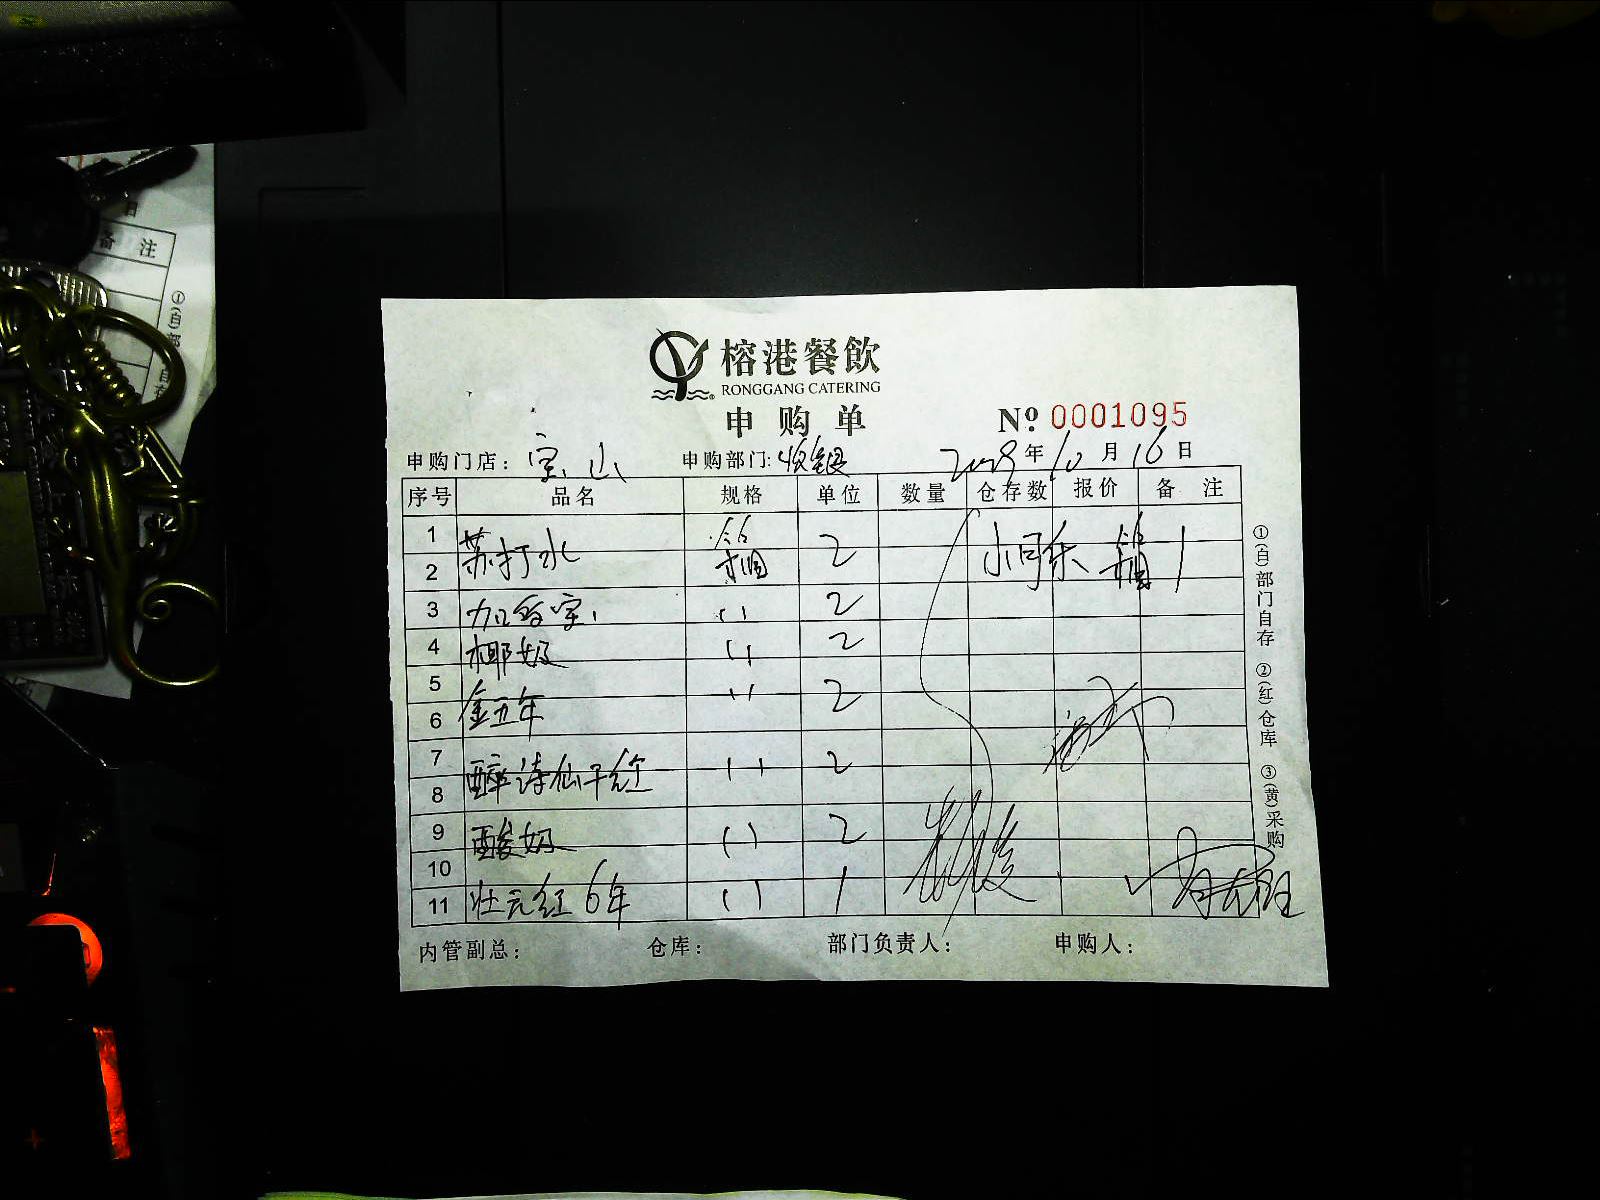 榕港餐飲
RONGGANG CATERING
申购单
Nº 0001095
申购门店：宝山 申购部门：收银 年10月16日
序号 品名 规格 单位 数量 仓存数 报价 备注
1
2 苏打水 箱 2 小可乐 箱 1
3 加多宝 〃 2
4 椰奶 〃 2
5
6 金五年 〃 2
7
8 醉诗仙千红 〃 2
9 酸奶 〃 2
10
11 壮元红6年 〃 1
内管副总： 仓库： 部门负责人： 申购人：
①(白)部门自存 ②(红)仓库 ③(黄)采购
备注
①(白)部